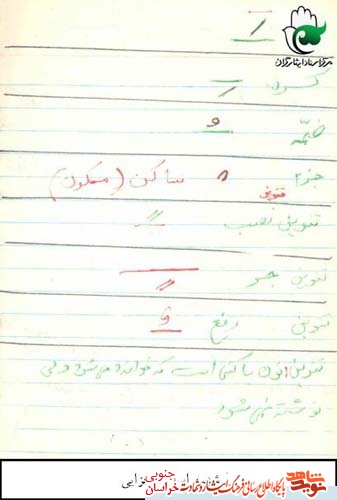 مرکز اسناد ایثارگران
کسره
ضمّه
جزم ساکن (سکون)
تنوین
تنوین نصب
تنوین جر
تنوین رفع
تنوین نون ساکنی است که خوانده می شود ولی
نوشته نمی شود
نوید شاهد
پایگاه اطلاع رسانی فرهنگ ایثار و شهادت
خراسان جنوبی